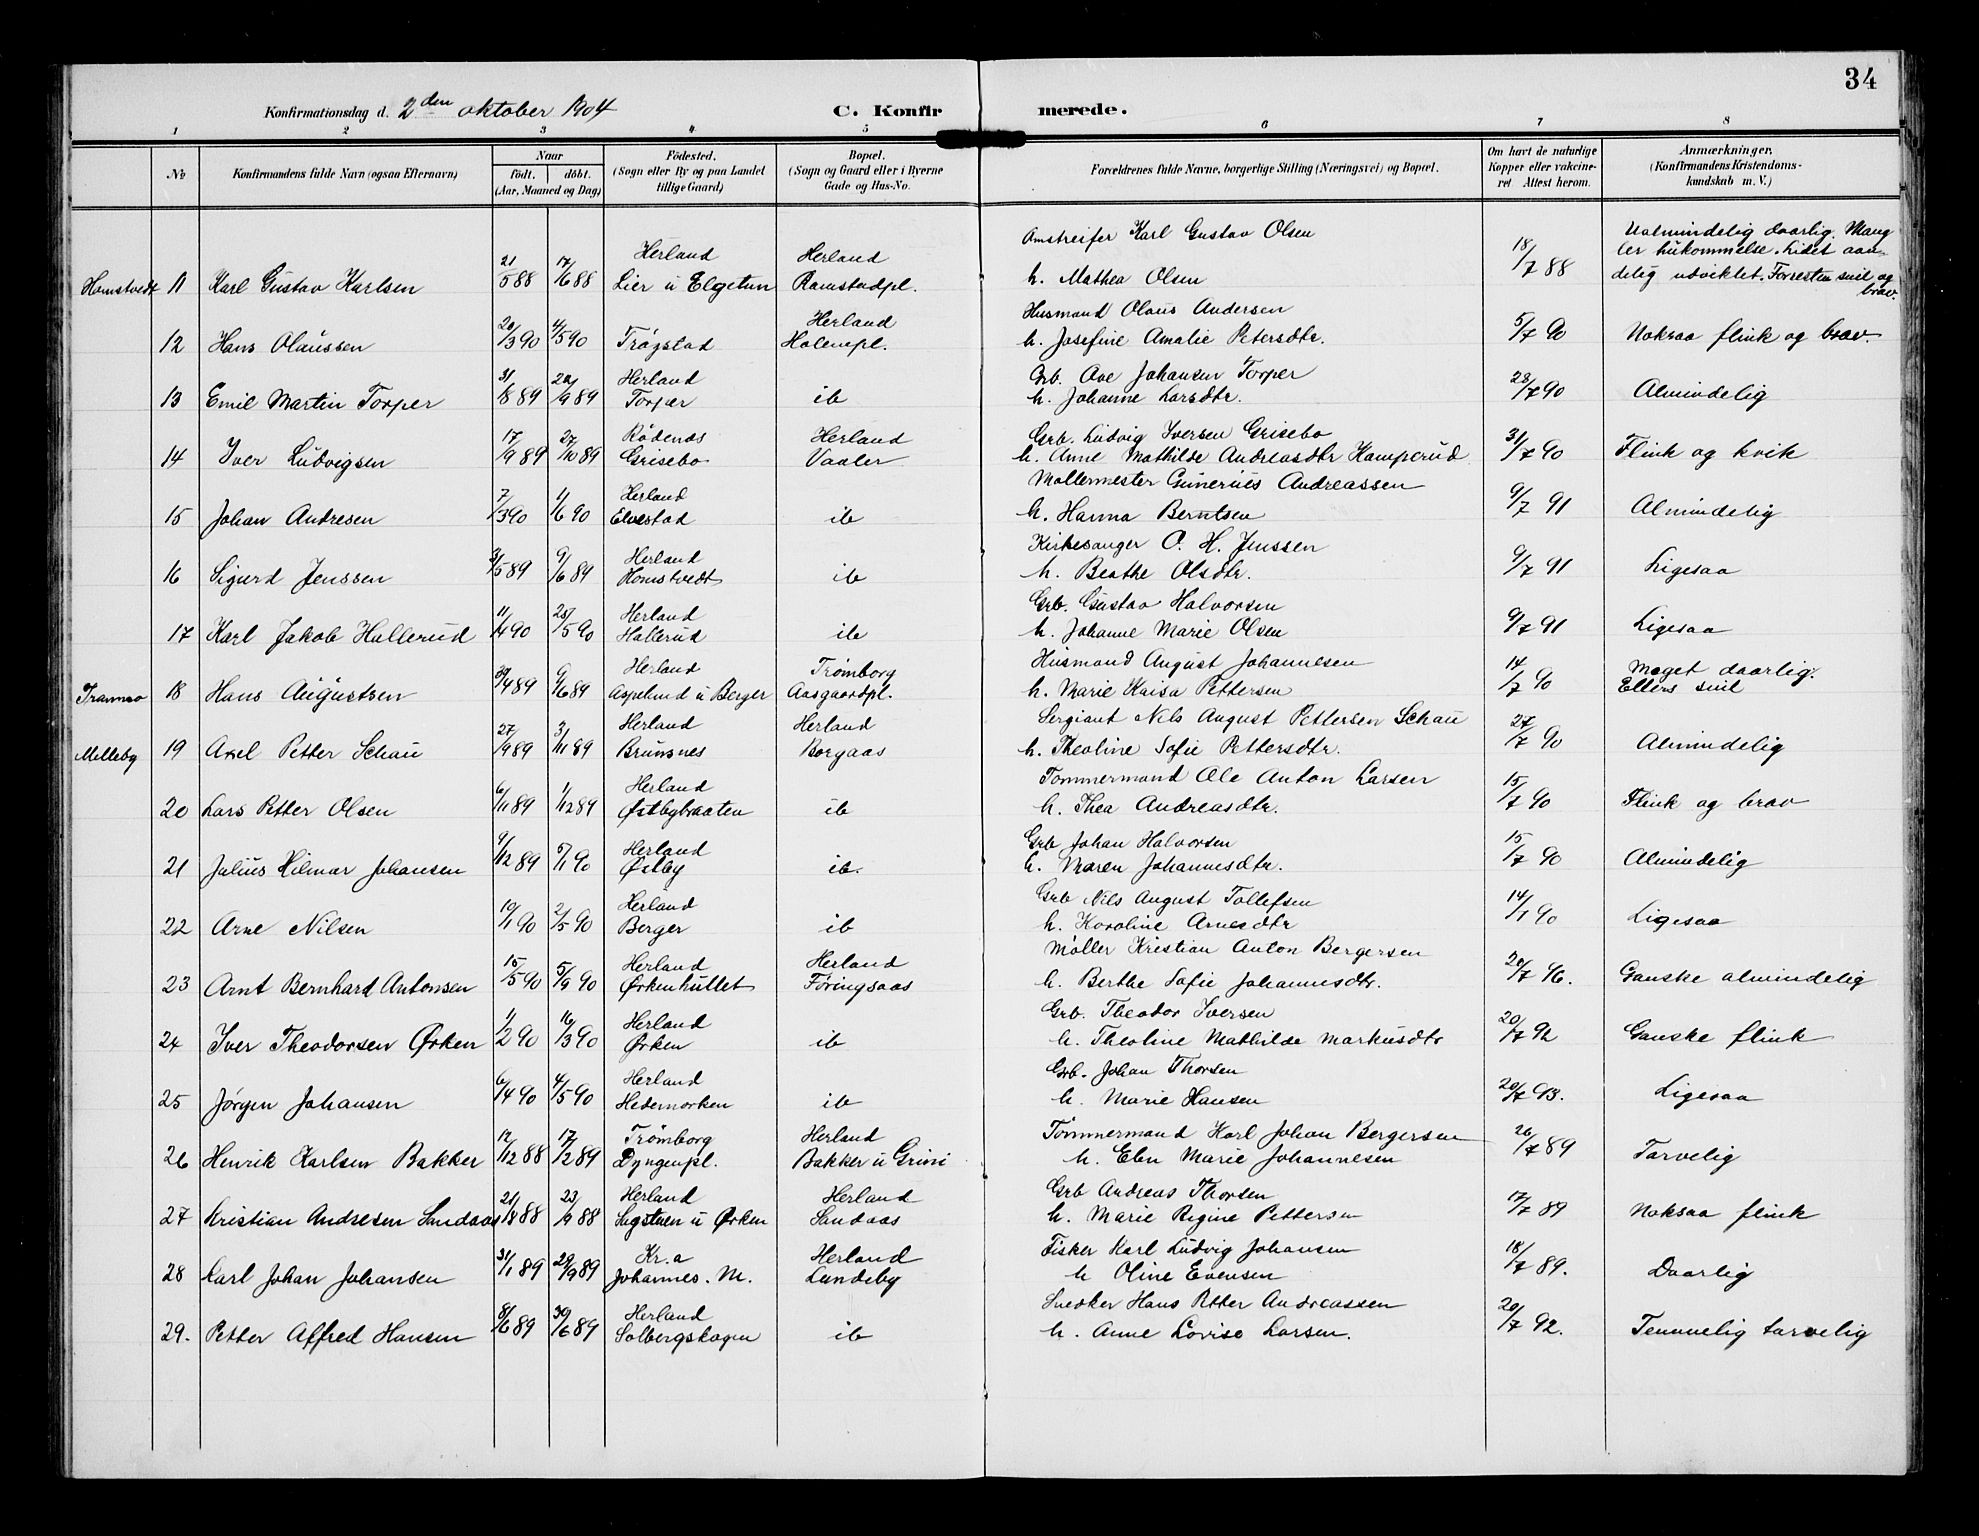 34
Konfirmationsdag d. 2den oktober 1904
C. Konfirmerede.
1 2 3 4 5 6 7 8
No
Konfirmandens fulde Navn (ogsaa Efternavn)
Naar
født. døbt.
(Aar, Maaned og Dag)
Fødested.
(Sogn eller By og paa Landet
tillige Gaard)
Bopæl.
(Sogn og Gaard eller i Byerne
Gade og Hus-No.
Forældrenes fulde Navne, borgerlige Stilling (Næringsvei) og Bopæl.
Om havt de naturlige
Kopper eller vakcine-
ret Attest herom.
Anmærkninger.
(Konfirmandens Kristendoms-
kundskab m. V.)
Herland Herland Omstreifer Karl Gustav Olsen Ualmindelig daarlig. Mang
ler hukommelse. Lidet aan-
Homstvedt 11 Karl Gustav Karlsen 21/5 88 17/6 88 Lier u Elgetun Ramstadpl. h. Mathea Olsen 18/7 88 delig udviklet. Forresten snil og
brav.
Herland Husmand Olaus Andersen
12 Hans Olaussen 20/3 90 4/5 90 Trøgstad Holempl. h. Josefine Amalie Petersdtr. 5/7 90 Noksaa flink og brav.
Herland Grb. Ave Johansen Torper
13 Emil Martin Torper 31/8 89 22/9 89 Torper ib h. Johanne Larsdtr. 28/7 90 Almindelig
Rødenes Herland Grb. Ludvig Iversen Grisebo
14 Iver Ludvigsen 17/9 89 27/10 89 Grisebo Vaaler h. Anne Mathilde Andreasdtr Kamperud 31/7 90 Flink og kvik
Herland Møllermester Gunerius Andreassen
15 Johan Andresen 7/3 90 1/6 90 Elvestad ib h. Hanna Berntsen 9/7 91 Almindelig
Herland Kirkesanger O. H. Jenssen
16 Sigurd Jenssen 3/5 89 9/6 89 Homstvedt ib h. Beathe Olsdtr. 9/7 91 Ligesaa
Herland Grb. Gustav Halvorsen
17 Karl Jakob Hallerud 11/4 90 25/5 90 Hallerud ib h. Johanne Marie Olsen 9/7 91 Ligesaa
Herland Trømborg Husmand August Johannesen Meget daarlig.
Tranmo 18 Hans Augustsen 30/4 89 9/6 89 Aspelund u Berger Aasgaardpl. h. Marie Kaisa Pettersen 14/7 90 Ellers snil
Herland Herland Sergiant Nils August Pettersen Schau
Melleby 19 Axel Petter Schau 27/9 89 3/11 89 Brunsnes Borgaas h. Theoline Sofie Pettersdtr. 27/7 90 Almindelig
Herland Tømmermand Ole Anton Larsen
20 Lars Petter Olsen 6/11 89 1/12 89 Østbybraaten ib h. Thea Andreasdtr. 15/7 90 Flink og brav
Herland Grb Johan Halvorsen
21 Julius Hilmar Johansen 9/12 89 5/1 90 Østby ib. h. Maren Johannesdtr. 15/7 90 Almindelig
Herland Grb Nils August Tollefsen
22 Arne Nilsen 19/1 90 2/5 90 Berger ib h. Karoline Arnesdtr 14/1 90 Ligesaa
Herland Herland Møller Kristian Anton Bergersen
23 Arnt Bernhard Antonsen 15/5 90 5/9 90 Ørkenhullet Føringsaas h. Berthe Sofie Johannesdtr. 20/7 96. Ganske almindelig
Herland Grb. Theodor Iversen
24 Iver Theodorsen Ørken 1/2 90 16/3 90 Ørken ib h. Theoline Mathilde Markusdtr 20/7 92 Ganske flink
Herland Grb. Johan Thorsen
25 Jørgen Johansen 6/4 90 4/5 90 Hedemorken ib h. Marie Hansen 20/7 93. Ligesaa
Trømborg Herland Tømmermand Karl Johan Bergersen
26 Henrik Karlsen Bakker 12/12 88 17/2 89 Dyngenpl. Bakker u Grini h. Elen Marie Johannesen 26/7 89 Tarvelig
Herland Herland Grb Andreas Thorsen
27 Kristian Andresen Sandaas 21/8 88 23/9 88 Sagstuen u Ørken Sandaas h. Marie Regine Pettersen 17/7 89 Noksaa flink
Kr.a Herland Fisker Karl Ludvig Johansen
28 Carl Johan Johansen 31/1 89 29/9 89 Johannes. M. Lundeby h Oline Evensen 18/7 89. Daarlig
Herland Snedker Hans Petter Andreassen
29. Petter Alfred Hansen 8/6 89 30/6 89 Solbergskogen ib h. Anne Lovise Larsen. 20/7 92. Temmelig tarvelig